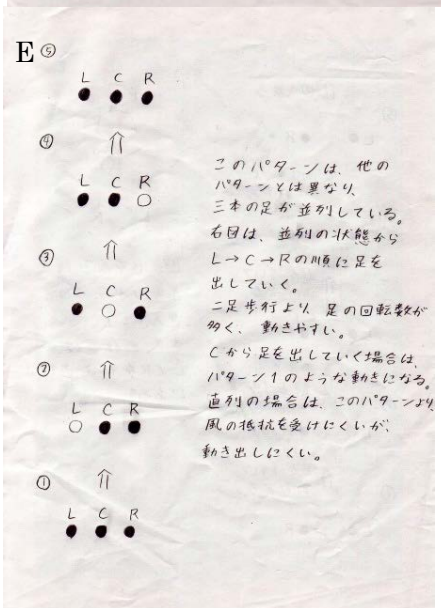 E ⑤
L C R
④
L C R
③
L C R
②
L C R
①
L C R
このパターンは、他の
パターンとは異なり、
三本の足が並列している。
右図は、並列の状態から
L→C→Rの順に足を
出していく。
二足歩行より、足の回転数が
多く、動きやすい。
Cから足を出していく場合は、
パターン1のような動きになる。
直列の場合は、このパターンより、
風の抵抗を受けにくいが、
動き出しにくい。